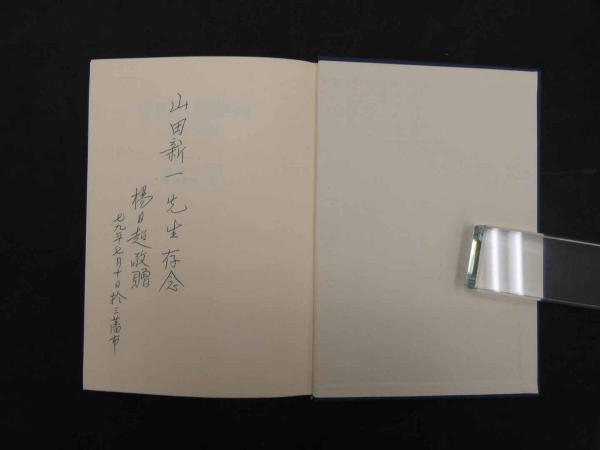 山田新一先生存念
楊日超敬贈
七九年七月十日於三藩市